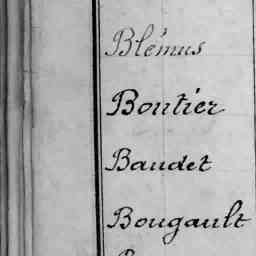 Blémus
Boutier
Baudet
Bougault